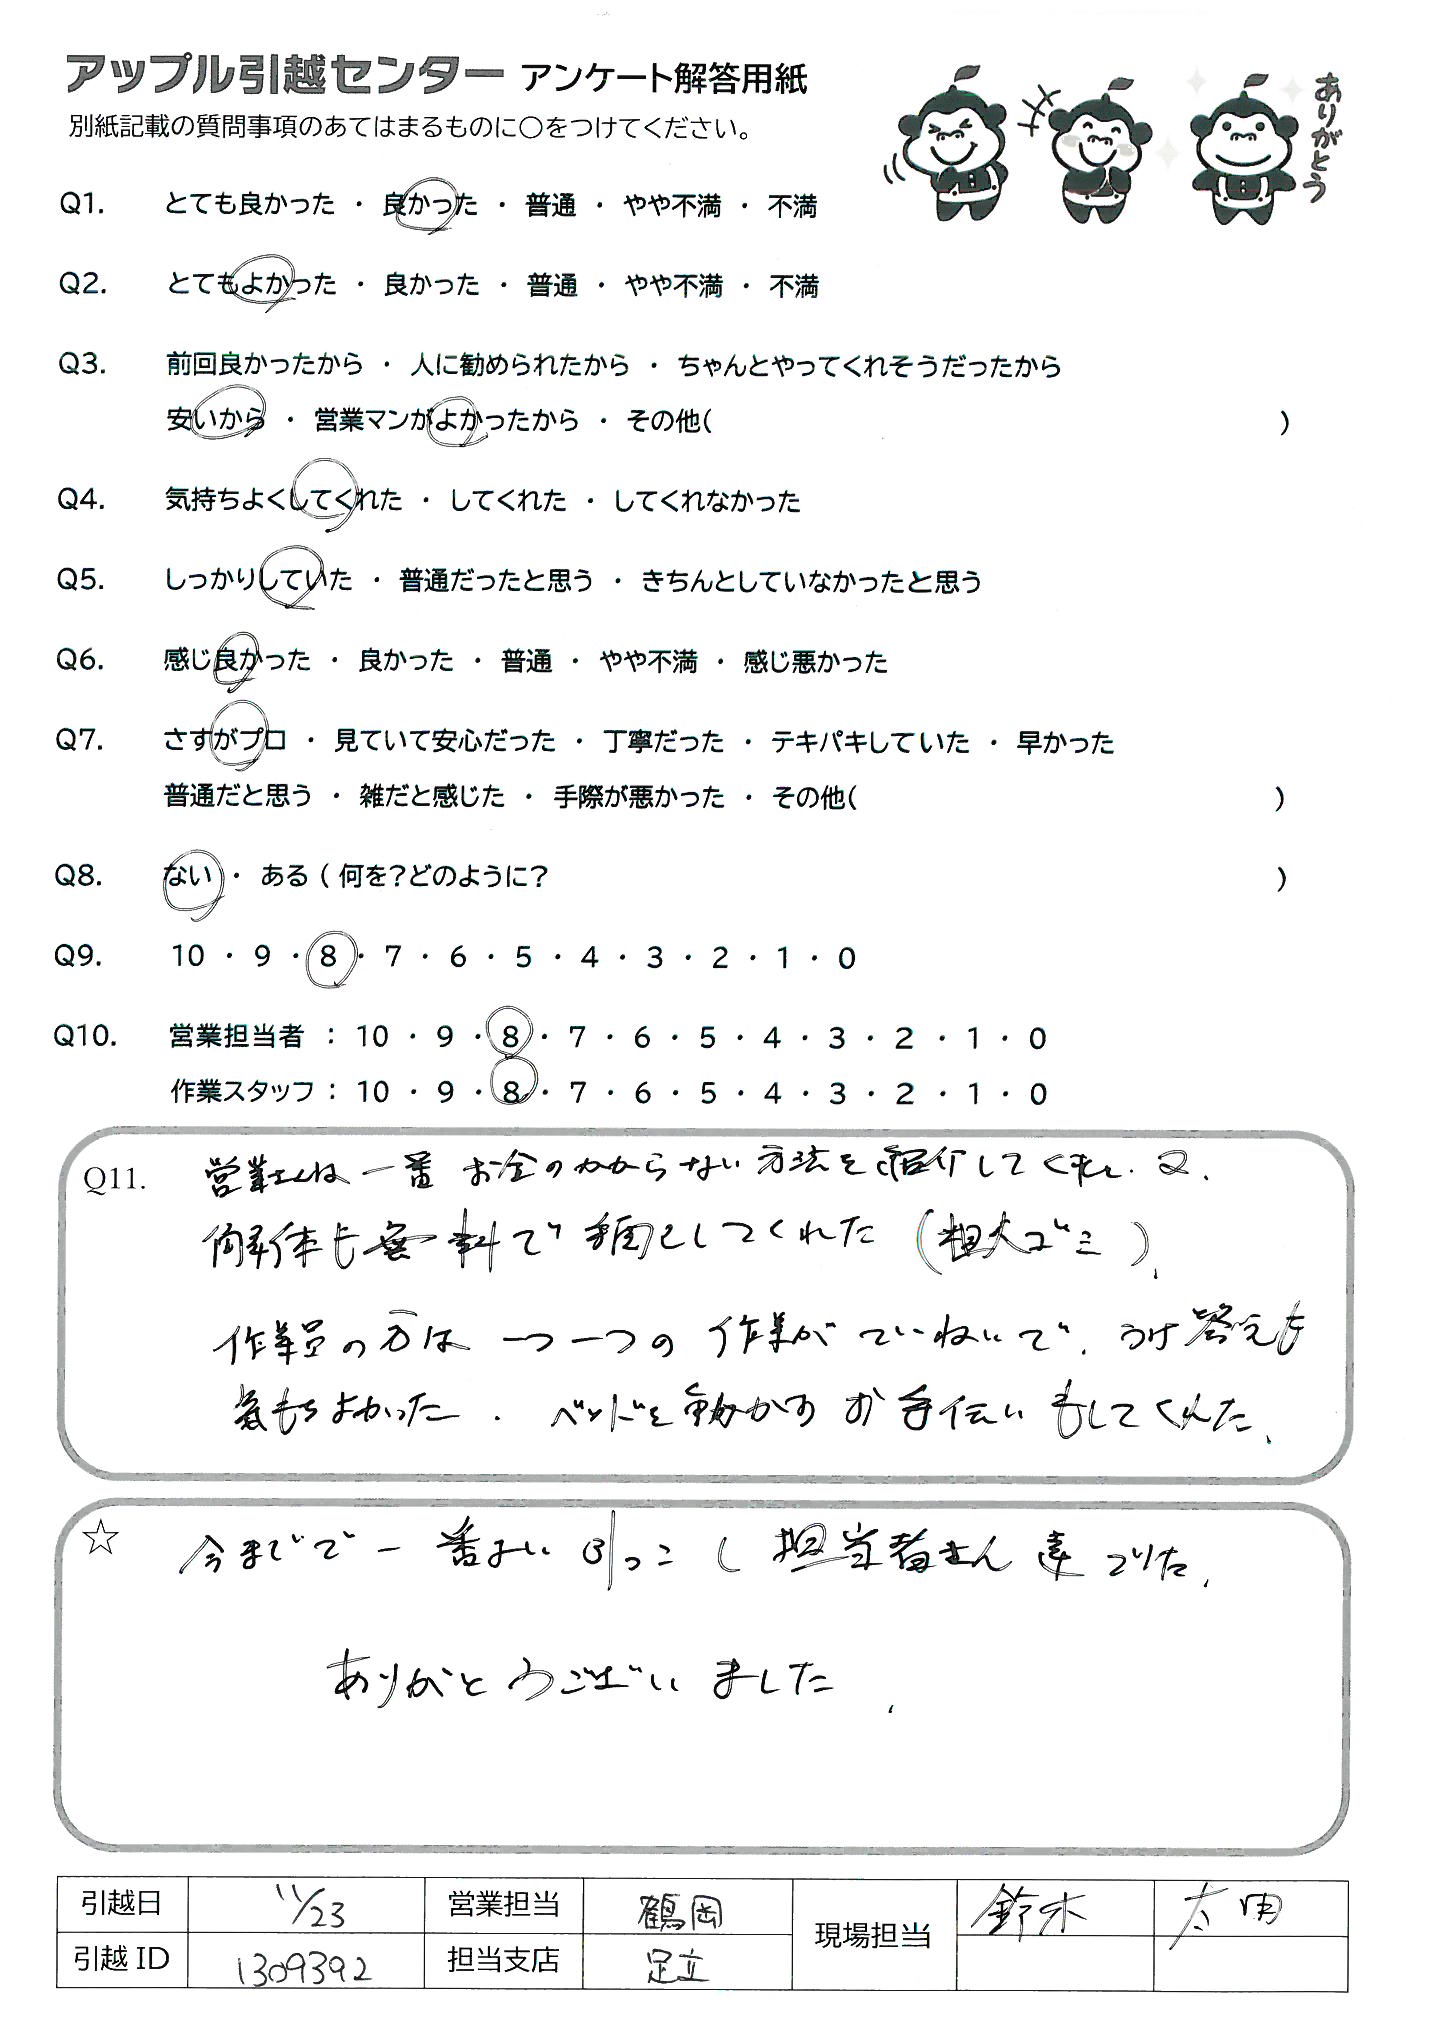 アップル引越センター アンケート解答用紙
別紙記載の質問事項のあてはまるものに○をつけてください。
ありがとう
Q1. とても良かった ・ 良かった ・ 普通 ・ やや不満 ・ 不満
Q2. とてもよかった ・ 良かった ・ 普通 ・ やや不満 ・ 不満
Q3. 前回良かったから ・ 人に勧められたから ・ ちゃんとやってくれそうだったから
安いから ・ 営業マンがよかったから ・ その他( )
Q4. 気持ちよくしてくれた ・ してくれた ・ してくれなかった
Q5. しっかりしていた ・ 普通だったと思う ・ きちんとしていなかったと思う
Q6. 感じ良かった ・ 良かった ・ 普通 ・ やや不満 ・ 感じ悪かった
Q7. さすがプロ ・ 見ていて安心だった ・ 丁寧だった ・ テキパキしていた ・ 早かった
普通だと思う ・ 雑だと感じた ・ 手際が悪かった ・ その他( )
Q8. ない ・ ある ( 何を?どのように? )
Q9. 10 ・ 9 ・ 8 ・ 7 ・ 6 ・ 5 ・ 4 ・ 3 ・ 2 ・ 1 ・ 0
Q10. 営業担当者 : 10 ・ 9 ・ 8 ・ 7 ・ 6 ・ 5 ・ 4 ・ 3 ・ 2 ・ 1 ・ 0
作業スタッフ : 10 ・ 9 ・ 8 ・ 7 ・ 6 ・ 5 ・ 4 ・ 3 ・ 2 ・ 1 ・ 0
Q11. 営業さんは一番お金のかからない方法を紹介してくれ、又、
解体も無料でしてくれた(粗大ゴミ)、
作業員の方は一つ一つの作業がていねいで、うけ答えも
気もちよかった、ベッドを動かすお手伝いもしてくれた、
☆ 今までで一番よい引っこし担当者さん達でした、
ありがとうございました、
引越日 11/23 営業担当 鶴岡 現場担当 鈴木
引越ID 1309392 担当支店 足立